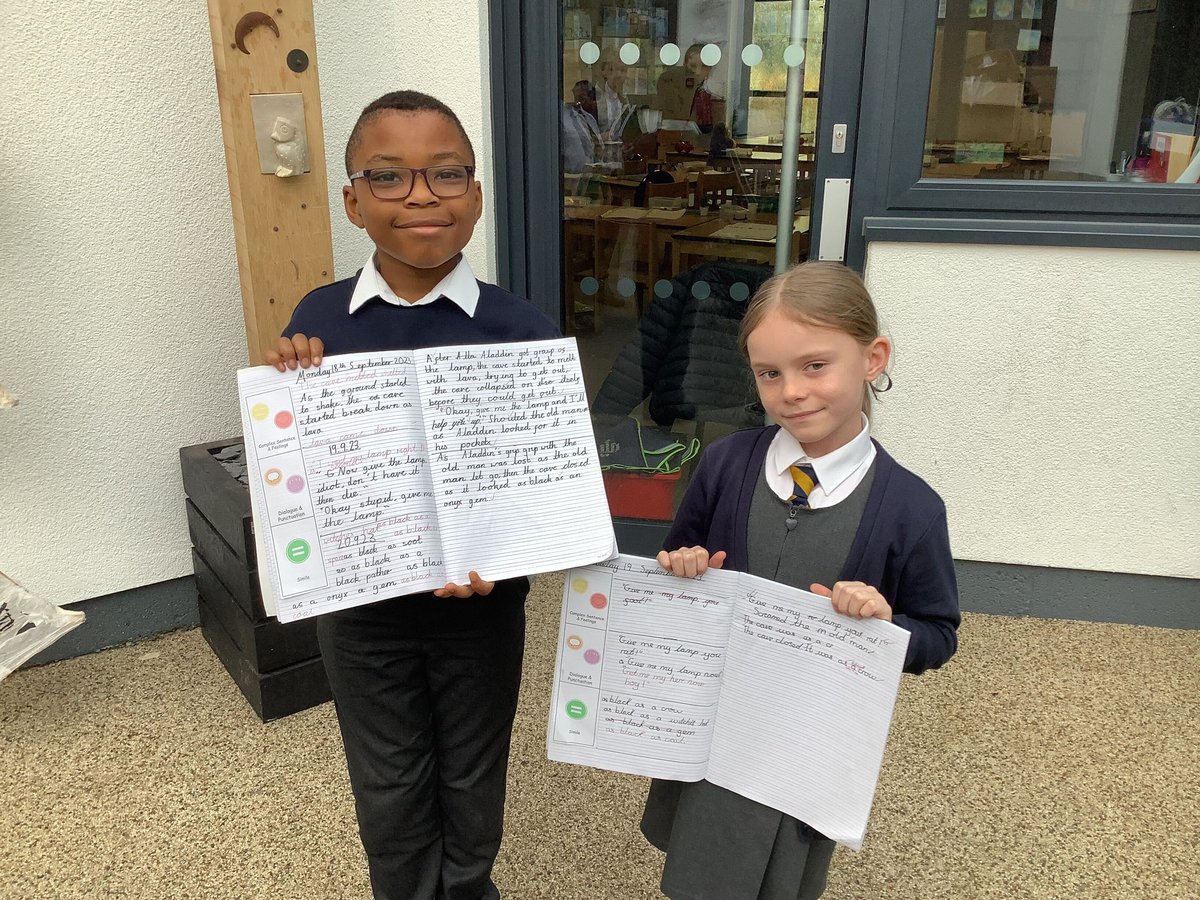 Monday 18th September 2023
The cave
As the gground started
to shake, the ca cave
started break down as
lava
lava came down
19.9.23
lamp right
"G Now give the lamp,
idiot, don't have it,
then die."
"Okay stupid, give me
the lamp."
20.9.23
as black as soot
so as black as a
black pather as
as a onyx a gem as black
Complex Sentence
& Feelings
Dialogue &
Punctuation
Simile
After Alla Aladdin got grasp os
the lamp, the cave started to melt
with lava, trying to get out,
the cave collapsed on itso itsely
before they could get out.
"Okay, give me the lamp and I'll
help you up!" Shouted the old man
as Aladdin looked for it in
his pocket.
As Aladdin's grip grip with the
old man was lost as the old
man let go, then the cave closed
as it looked as black as an
onyx gem.
19 September
Complex Sentence
& Feelings
Dialogue &
Punctuation
Simile
"Give me my lamp you
"Give me my lamp you
rat!"
a Give me my lamp now
boy!"
as black as a crow
as black as a witch's hat
as black as a gem
as black as coal
"Give me my lamp you rat!"
Screamed the old man.
The cave was as a
The cave closed It was as crow